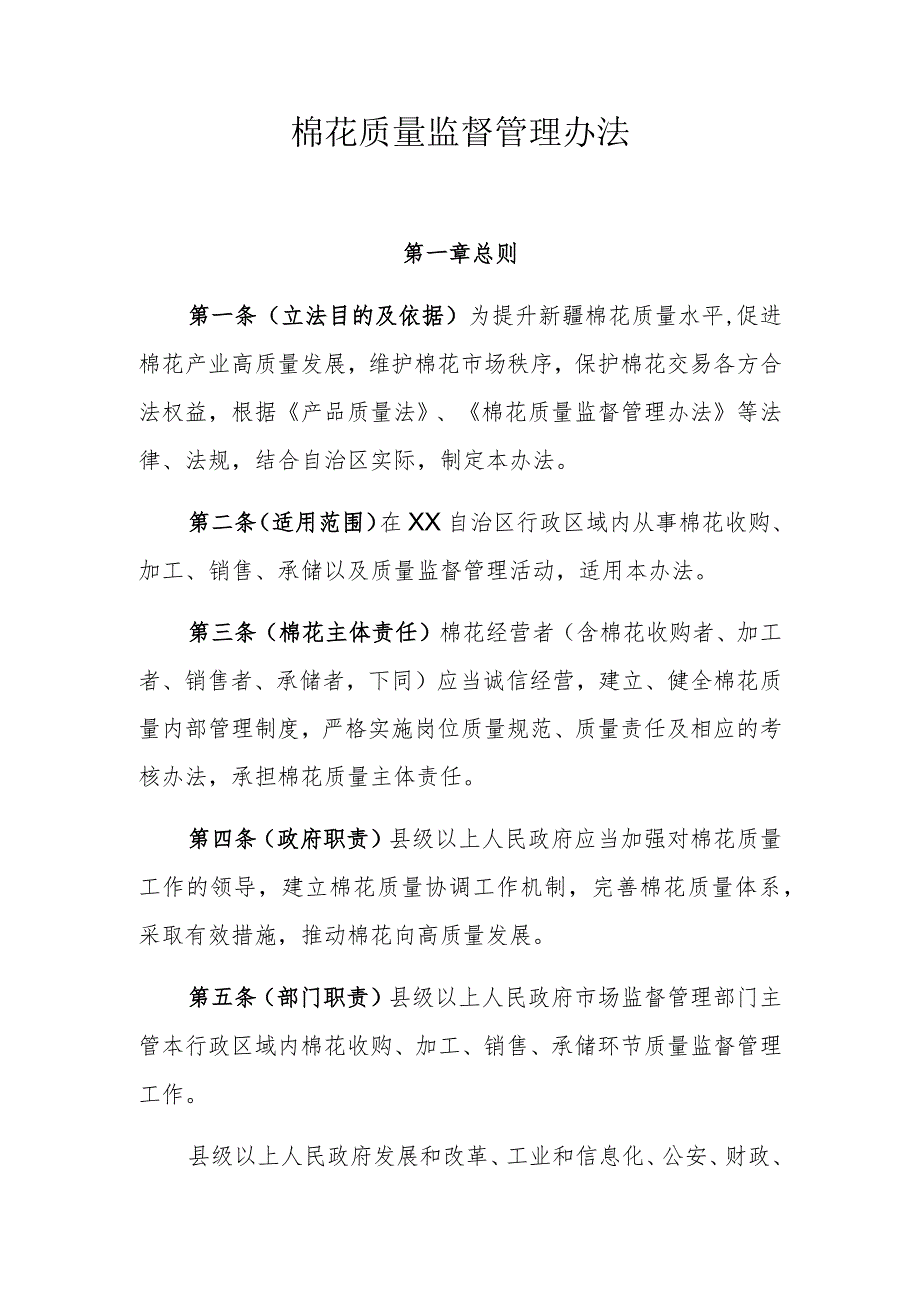 棉花质量监督管理办法
第一章总则
第一条（立法目的及依据）为提升新疆棉花质量水平,促进
棉花产业高质量发展，维护棉花市场秩序，保护棉花交易各方合
法权益，根据《产品质量法》、《棉花质量监督管理办法》等法
律、法规，结合自治区实际，制定本办法。
第二条（适用范围）在XX自治区行政区域内从事棉花收购、
加工、销售、承储以及质量监督管理活动，适用本办法。
第三条（棉花主体责任）棉花经营者（含棉花收购者、加工
者、销售者、承储者，下同）应当诚信经营，建立、健全棉花质
量内部管理制度，严格实施岗位质量规范、质量责任及相应的考
核办法，承担棉花质量主体责任。
第四条（政府职责）县级以上人民政府应当加强对棉花质量
工作的领导，建立棉花质量协调工作机制，完善棉花质量体系，
采取有效措施，推动棉花向高质量发展。
第五条（部门职责）县级以上人民政府市场监督管理部门主
管本行政区域内棉花收购、加工、销售、承储环节质量监督管理
工作。
县级以上人民政府发展和改革、工业和信息化、公安、财政、